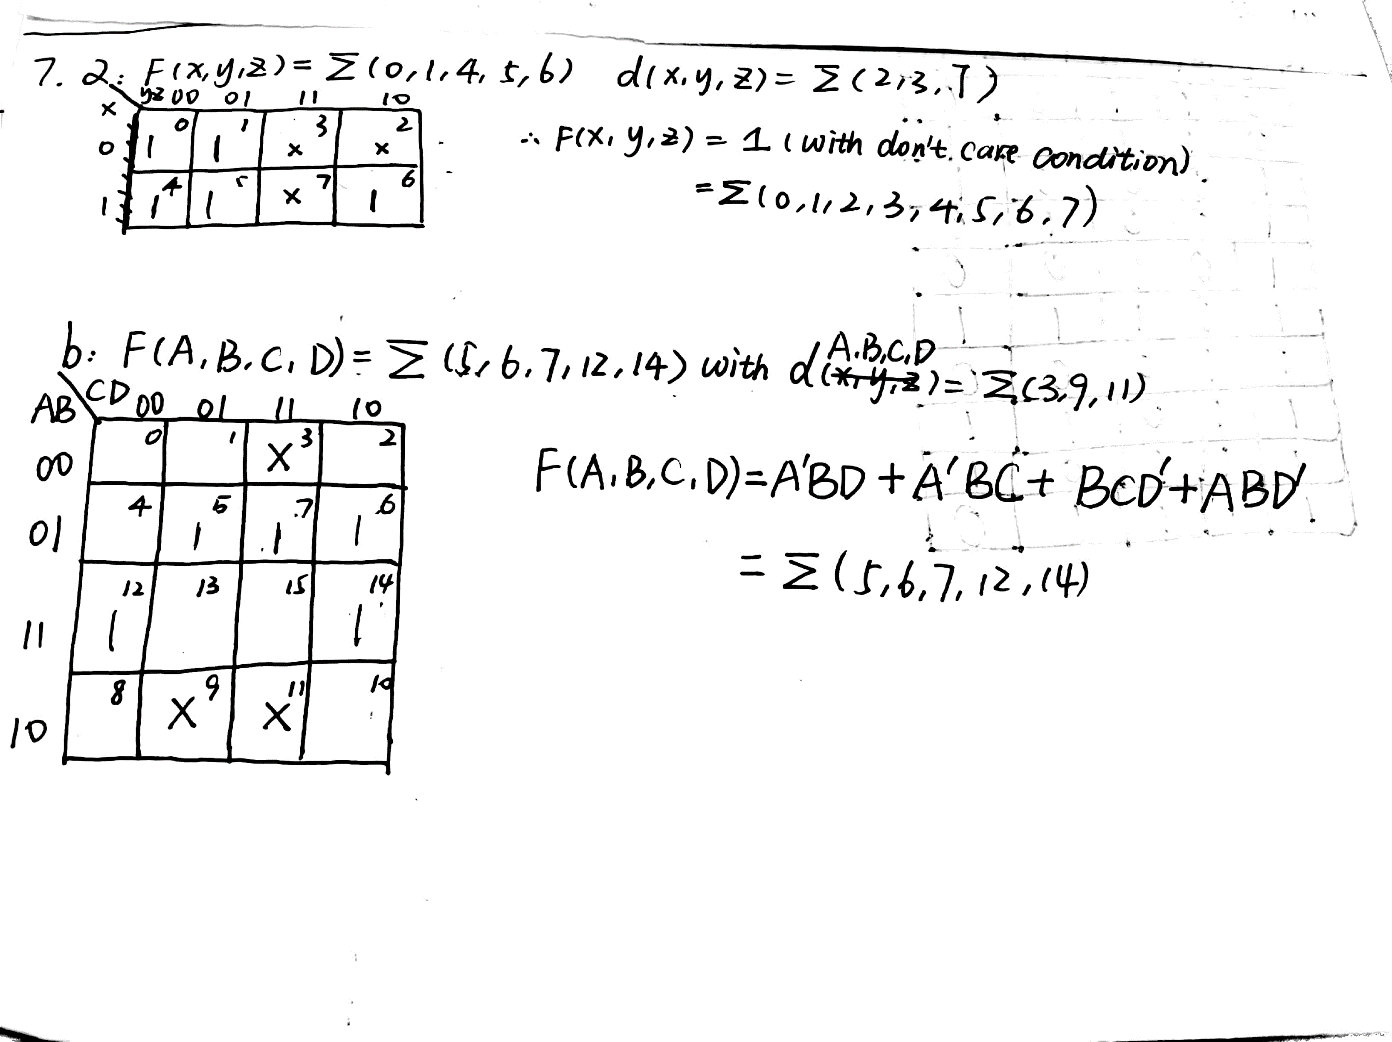 7. a: F(x,y,z)= Σ(0,1,4,5,6) d(x,y,z)= Σ(2,3,7)
x yz 00 01 11 10
0 1 0 1 1 x 3 x 2
1 1 4 1 5 x 7 1 6
∴ F(x,y,z) = 1 (with don't care condition)
=Σ(0,1,2,3,4,5,6,7)
b: F(A,B,C,D)= Σ(5,6,7,12,14) with d(x,y,z) A,B,C,D = Σ(3,9,11)
AB CD 00 01 11 10
00 0 1 X 3 2
01 4 1 5 1 7 1 6
11 1 12 13 15 1 14
10 8 X 9 X 11 10
F(A,B,C,D)=A'BD + A'BC + BCD' + ABD'
= Σ(5,6,7,12,14)